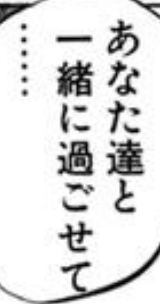 あなた達と
一緒に過ごせて
……